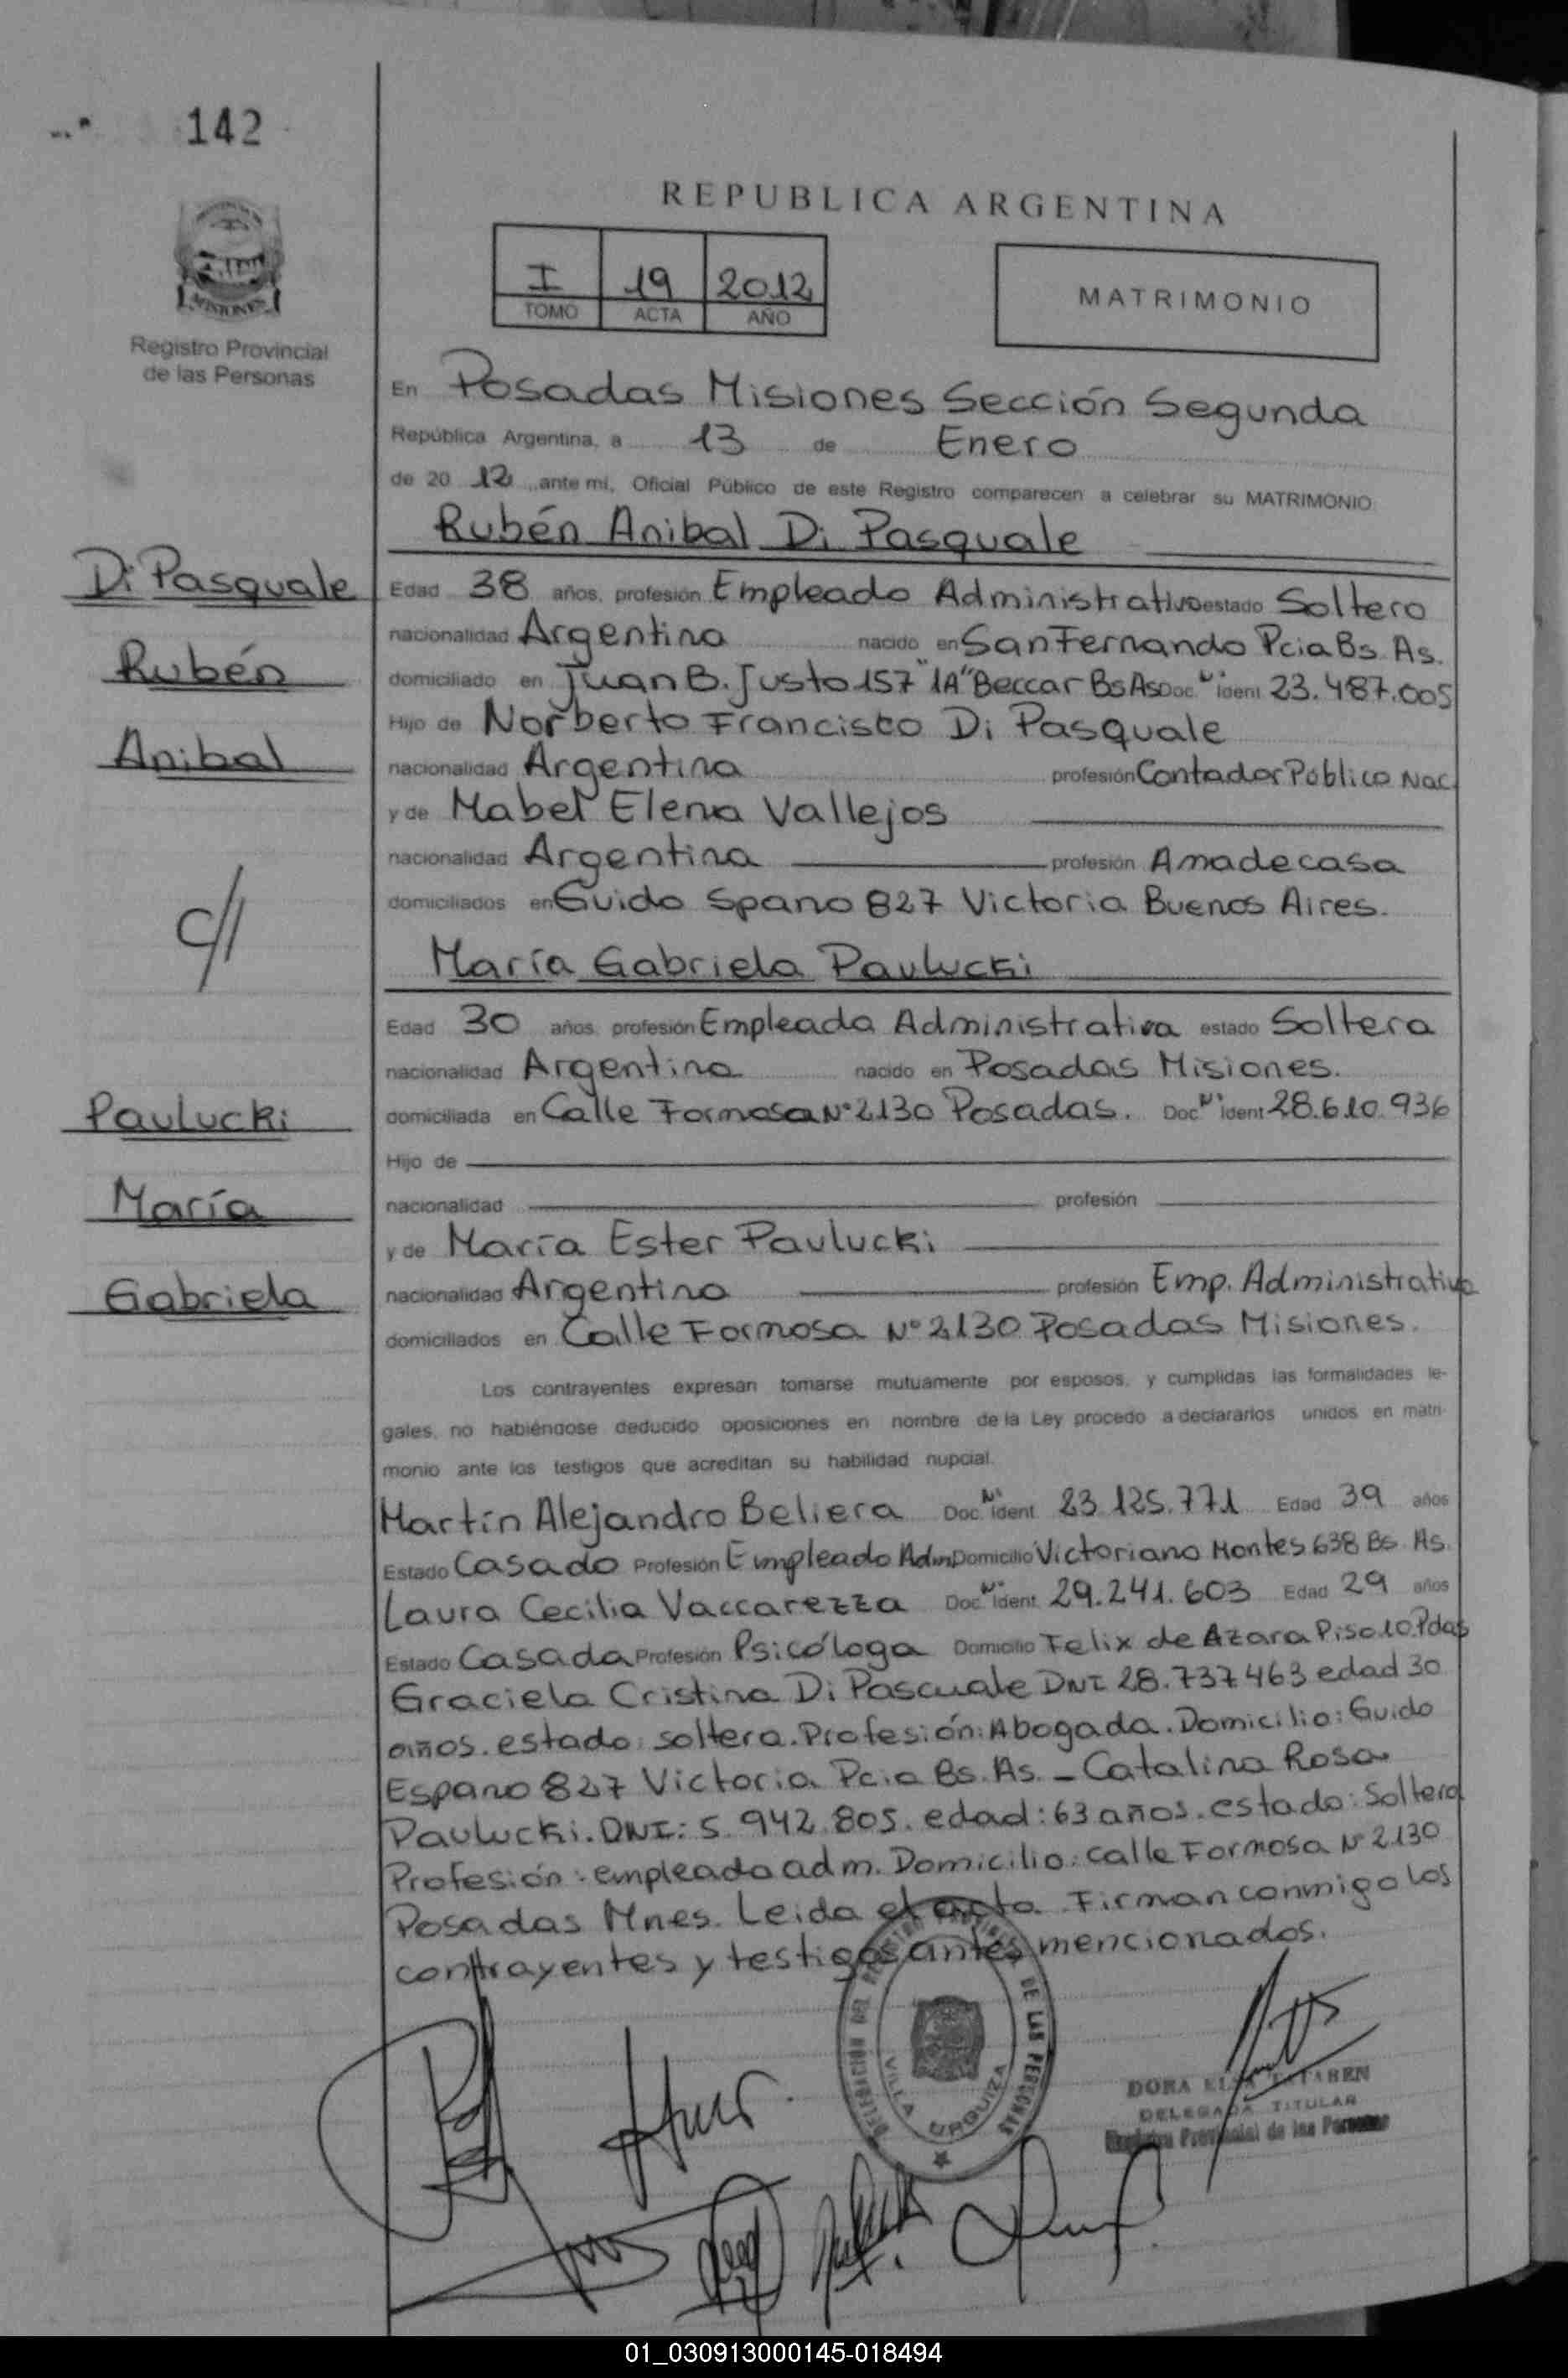 142
MISIONES
Registro Provincial
de las Personas
REPUBLICA ARGENTINA
I 19 2012
TOMO ACTA AÑO
MATRIMONIO
En Posadas Misiones Sección Segunda
República Argentina, a 13 de Enero
de 20 12 ante mi, Oficial Público de este Registro comparecen a celebrar su MATRIMONIO
Rubén Anibal Di Pasquale
Di Pasquale
Rubén
Anibal
c/
Paulucki
María
Gabriela
Edad 38 años, profesión Empleado Administrativo estado Soltero
nacionalidad Argentina nacido en San Fernando Pcia Bs. As.
domiciliado en Juan B. Justo 157 "1A" Beccar Bs As Doc. Nº Ident 23.487.005
Hijo de Norberto Francisco Di Pasquale
nacionalidad Argentina profesión Contador Público Nac.
y de Mabel Elena Vallejos
nacionalidad Argentina profesión Ama de casa
domiciliados en Guido Spano 827 Victoria Buenos Aires.
María Gabriela Paulucki
Edad 30 años profesión Empleada Administrativa estado Soltera
nacionalidad Argentina nacido en Posadas Misiones.
domiciliada en Calle Formosa Nº 2130 Posadas. Doc Nº Ident 28.610.936
Hijo de
nacionalidad profesión
y de María Ester Paulucki
nacionalidad Argentina profesión Emp. Administrativa
domiciliados en Calle Formosa Nº 2130 Posadas Misiones.
Los contrayentes expresan tomarse mutuamente por esposos, y cumplidas las formalidades le-
gales, no habiéndose deducido oposiciones en nombre de la Ley procedo a declararlos unidos en matri-
monio ante los testigos que acreditan su habilidad nupcial.
Martín Alejandro Beliera Doc. Nº Ident 23.125.771 Edad 39 años
Estado Casado Profesión Empleado Adm. Domicilio Victoriano Montes 638 Bs. As.
Laura Cecilia Vaccarezza Doc. Nº Ident. 29.241.603 Edad 29 años
Estado Casada Profesión Psicóloga Domicilio Felix de Azara Piso 10 Pdas
Graciela Cristina Di Pascuale DNI 28.737463 edad 30
años. estado: soltera. Profesión: Abogada. Domicilio: Guido
Espano 827 Victoria Pcia Bs. As. - Catalina Rosa
Paulucki. DNI: 5.942.805. edad: 63 años. estado: Soltera
Profesión: empleada adm. Domicilio: calle Formosa Nº 2130
Posadas Mnes. Leida el acta. Firman conmigo los
contrayentes y testigos antes mencionados.
DELEGACION DEL REGISTRO PROVINCIAL DE LAS PERSONAS
VILLA URQUIZA
DORA
DELEGADA TITULAR
Registro Provincial de las Personas
01_030913000145-018494